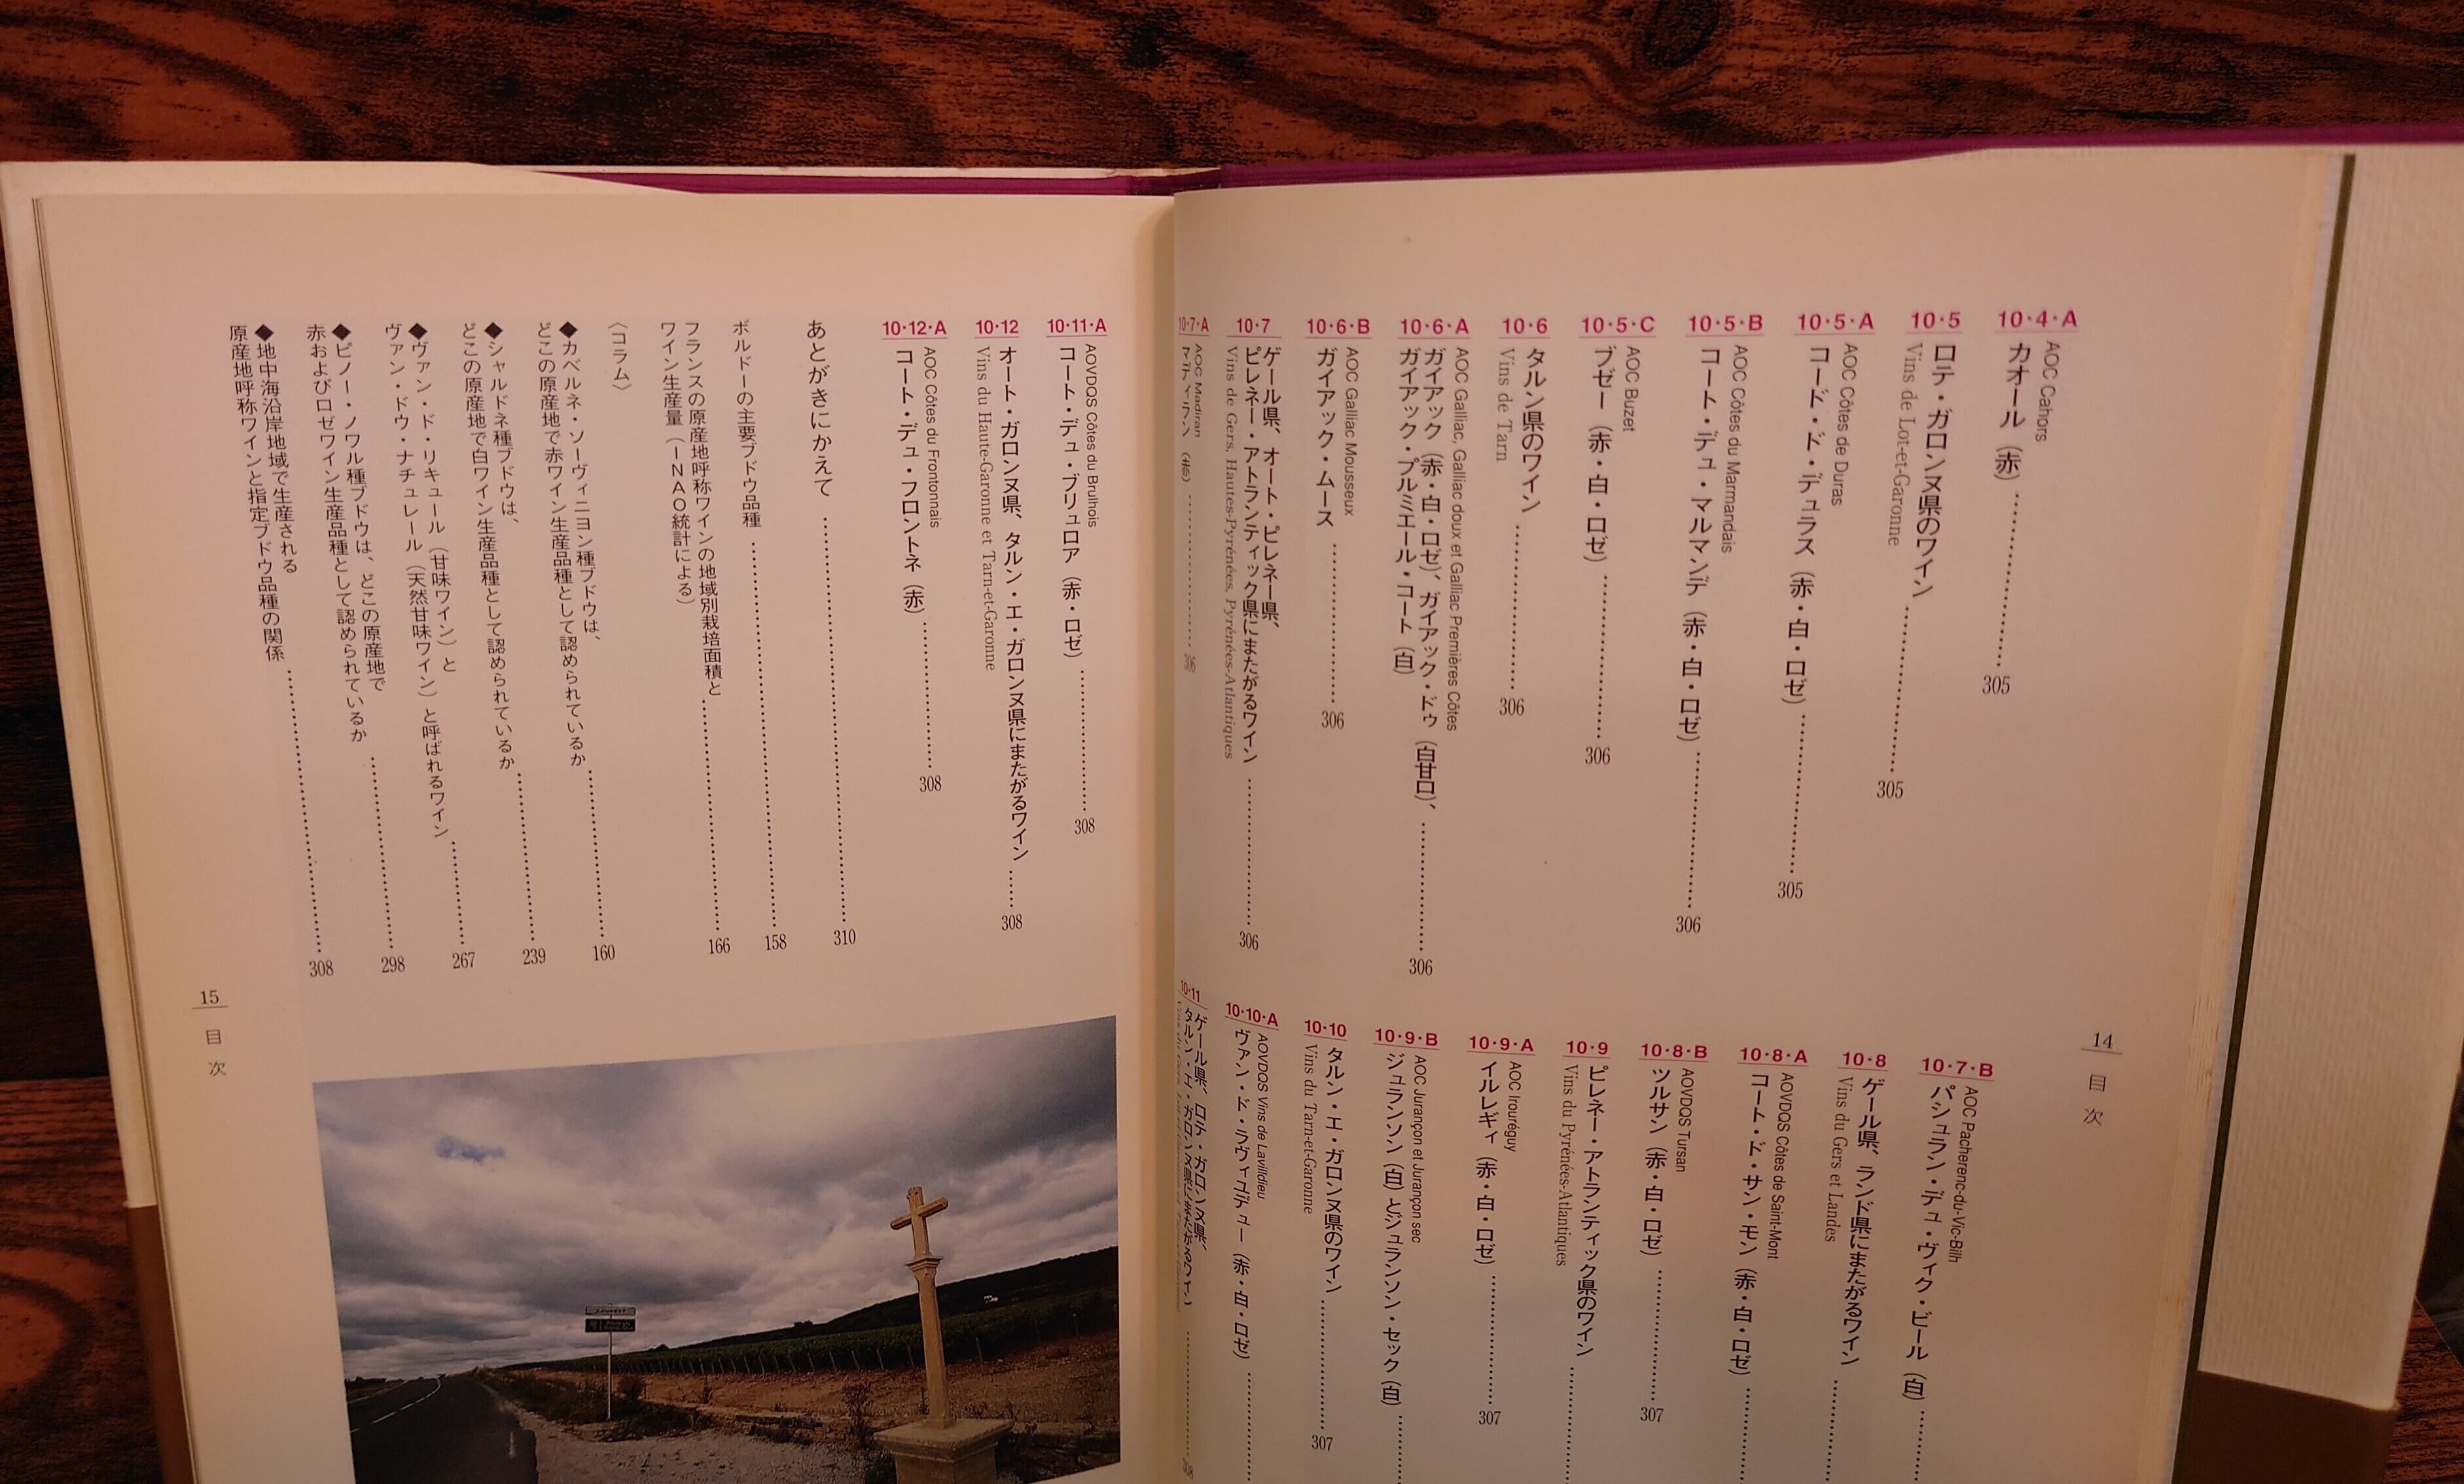 10・4・A
AOC Cahors
カオール（赤）……305
10・5
ロテ・ガロンヌ県のワイン……305
Vins de Lot-et-Garonne
10・5・A
AOC Côtes de Duras
コート・ド・デュラス（赤・白・ロゼ）……305
10・5・B
AOC Côtes du Marmandais
コート・デュ・マルマンデ（赤・白・ロゼ）……306
10・5・C
AOC Buzet
ブゼー（赤・白・ロゼ）……306
10・6
タルン県のワイン……306
Vins de Tarn
10・6・A
AOC Galliac, Galliac doux et Galliac Premières Côtes
ガイアック（赤・白・ロゼ）、ガイアック・ドゥ（白甘口）、
ガイアック・プルミエール・コート（白）……306
10・6・B
AOC Galliac Mousseux
ガイアック・ムース……306
10・7
ゲール県、オート・ピレネー県、
ピレネー・アトランティック県にまたがるワイン……306
Vins de Gers, Hautes-Pyrénées, Pyrénées-Atlantiques
10・7・A
AOC Madiran
……306
10・7・B
AOC Pacherenc-du-Vic-Bilh
パシュラン・デュ・ヴィク・ビール（白）……
10・8
ゲール県、ランド県にまたがるワイン……
Vins du Gers et Landes
10・8・A
AOVDQS Côtes de Saint-Mont
コート・ド・サン・モン（赤・白・ロゼ）……
10・8・B
AOVDQS Tursan
ツルサン（赤・白・ロゼ）……307
10・9
ピレネー・アトランティック県のワイン……
Vins du Pyrénées-Atlantiques
10・9・A
AOC Irouréguy
イルレギィ（赤・白・ロゼ）……307
10・9・B
AOC Jurançon et Jurançon sec
ジュランソン（白）とジュランソン・セック（白）……
10・10
タルン・エ・ガロンヌ県のワイン……307
Vins du Tarn-et-Garonne
10・10・A
AOVDQS Vins de Lavilldieu
ヴァン・ド・ラヴィユデュー（赤・白・ロゼ）……
10・11
ゲール県、ロト・ガロンヌ県、
タルン・エ・ガロンヌ県にまたがるワイン……
14
目次
10・11・A
AOVDQS Côtes du Brulhois
コート・デュ・ブリュロア（赤・ロゼ）……308
10・12
オート・ガロンヌ県、タルン・エ・ガロンヌ県にまたがるワイン……308
Vins du Haute-Garonne et Tarn-et-Garonne
10・12・A
AOC Côtes du Frontonnais
コート・デュ・フロントネ（赤）……308
あとがきにかえて……310
ボルドーの主要ブドウ品種……158
フランスの原産地呼称ワインの地域別栽培面積と
ワイン生産量（INAO統計による）……166
〈コラム〉
◆カベルネ・ソーヴィニヨン種ブドウは、
どこの原産地で赤ワイン生産品種として認められているか……160
◆シャルドネ種ブドウは、
どこの原産地で白ワイン生産品種として認められているか……239
◆ヴァン・ド・リキュール（甘味ワイン）と
ヴァン・ドウ・ナチュレール（天然甘味ワイン）と呼ばれるワイン……267
◆ピノー・ノワル種ブドウは、どこの原産地で
赤およびロゼワイン生産品種として認められているか……298
◆地中海沿岸地域で生産される
原産地呼称ワインと指定ブドウ品種の関係……308
15
目次